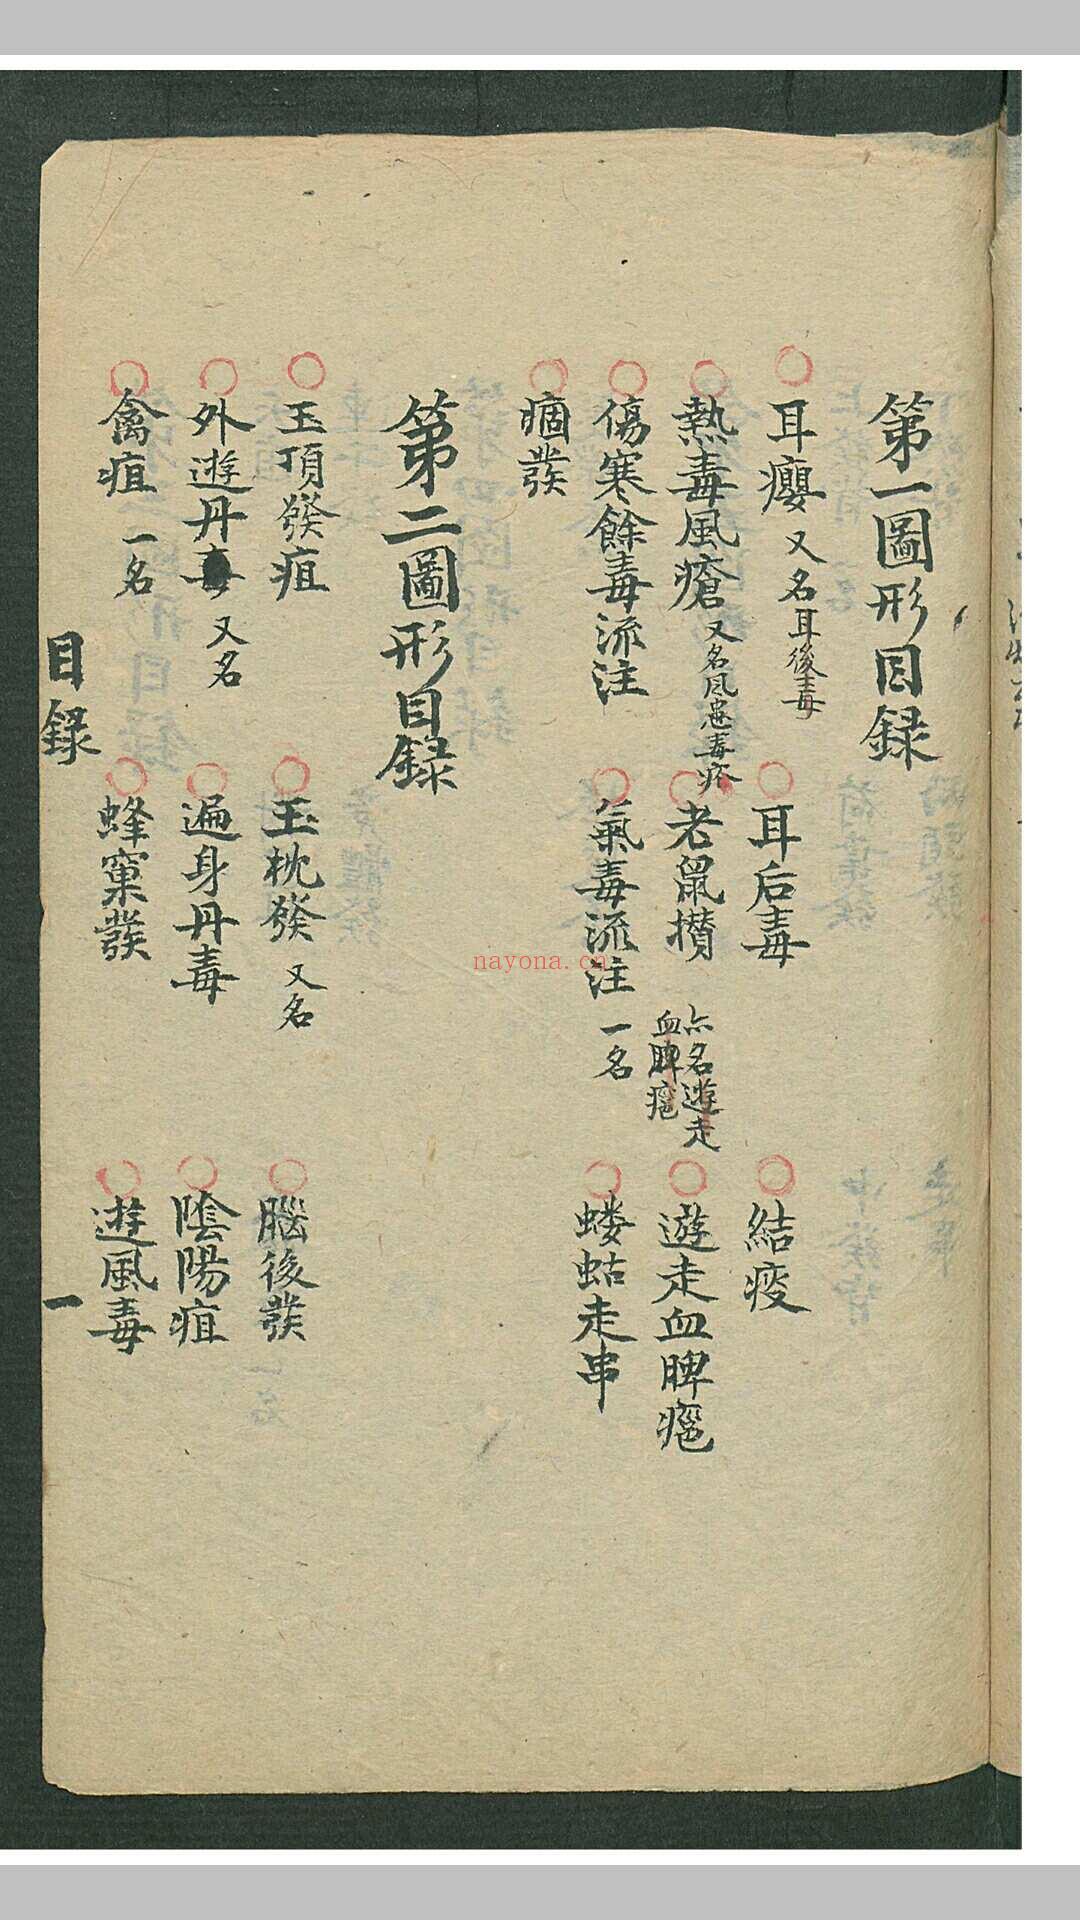 第一圖形目録
耳癭 又名耳後毒 耳后毒 結痰
熱毒風瘡 又名風患毒疹 老鼠攢 亦名遊走血脾瘤 遊走血脾瘤
傷寒餘毒流注 氣毒流注 一名 蝼蛄走串
痼發
第二圖形目録
玉頂發疽 玉枕發 又名 腦後發
外遊丹毒 又名 遍身丹毒 陰陽疽
禽疽 一名 蜂窠發 遊風毒
目録 一
nayona.cn